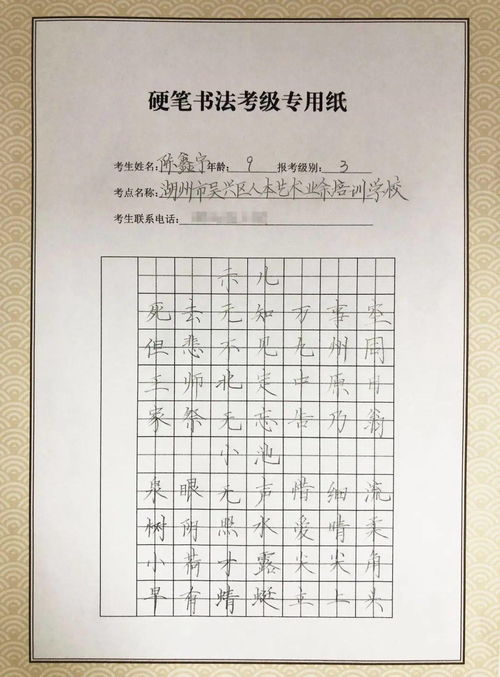 硬笔书法考级专用纸
考生姓名：陈鑫宇 年龄：9 报考级别：3
考点名称：湖州市吴兴区人本艺术业余培训学校
考生联系电话：
示儿
死去元知万事空
但悲不见九州同
王师北定中原日
家祭无忘告乃翁
小池
泉眼无声惜细流
树阴照水爱晴柔
小荷才露尖尖角
早有蜻蜓立上头